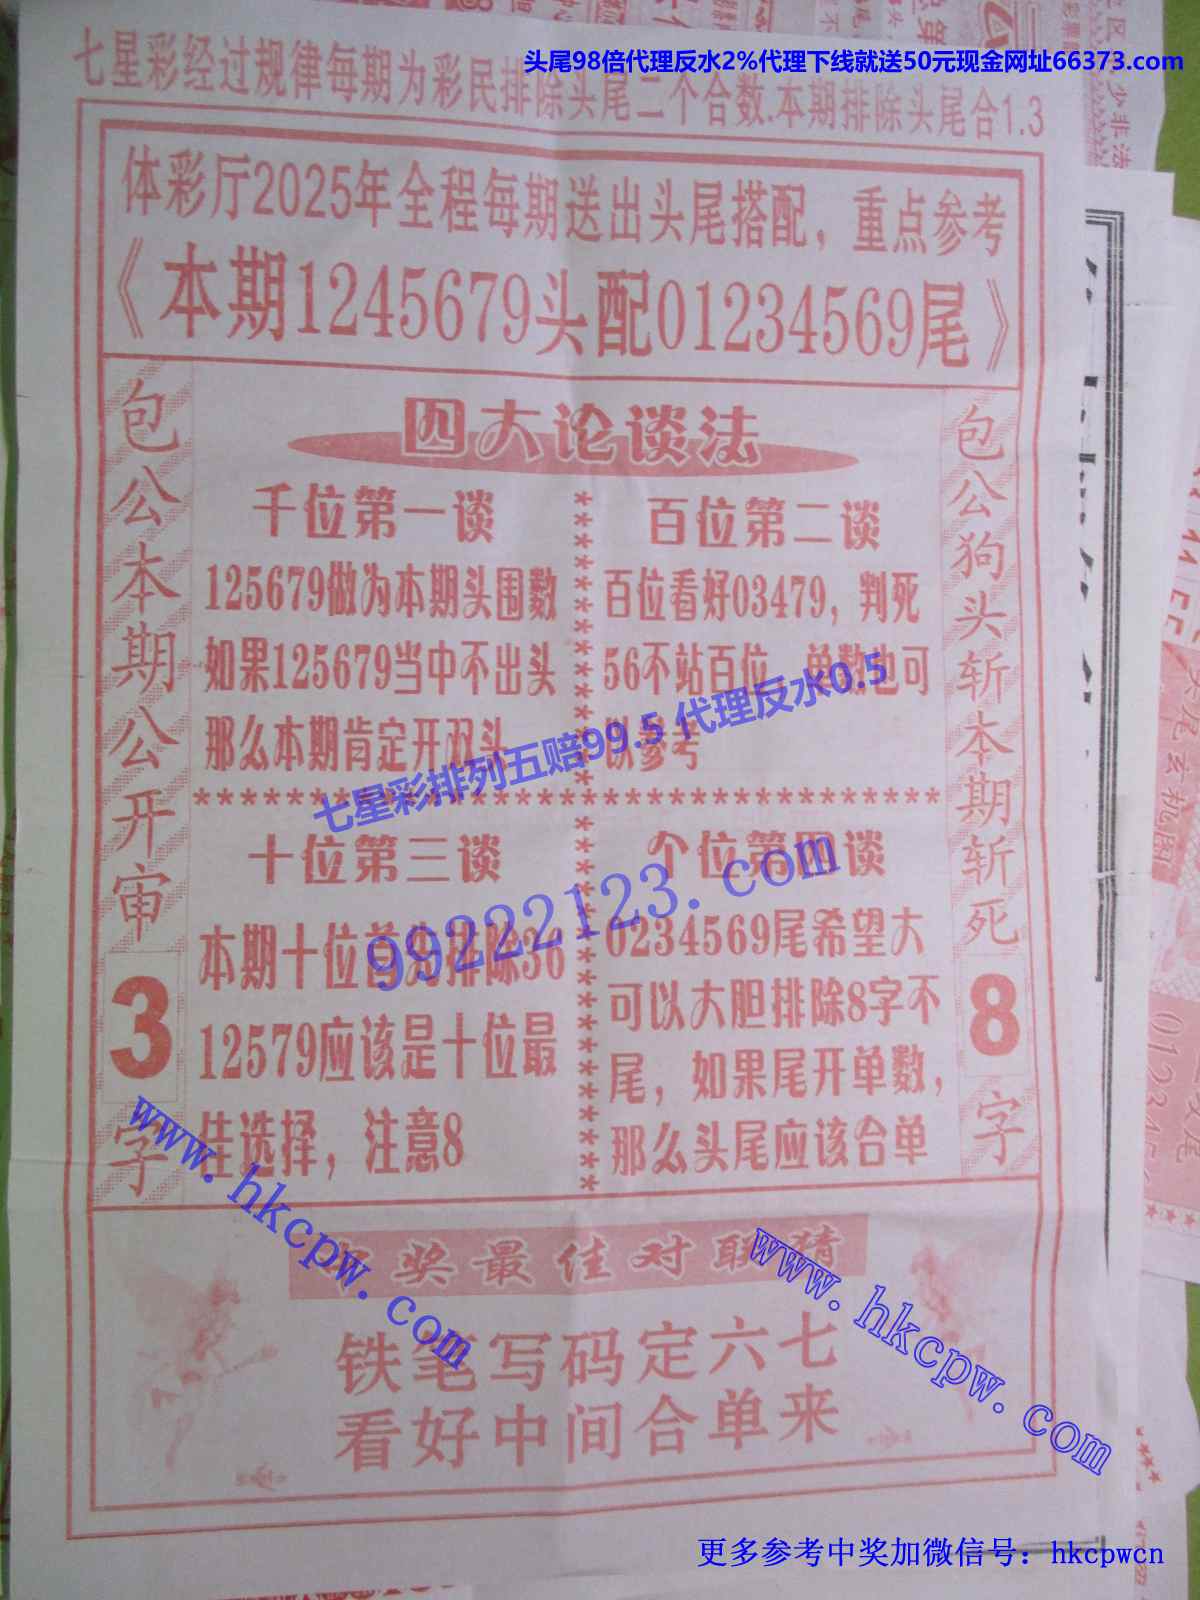 头尾98倍代理反水2%代理下线就送50元现金网址66373.com
七星彩经过规律每期为彩民排除头尾二个合数.本期排除头尾合1.3
体彩厅2025年全程每期送出头尾搭配，重点参考
《本期1245679头配01234569尾》
包公本期公开审3字
四大论谈法
千位第一谈
125679做为本期头围数
如果125679当中不出头
那么本期肯定开双头
百位第二谈
百位看好03479，判死
56不站百位，单数也可
以参考
七星彩排列五赔99.5 代理反水0.5
99222123.com
十位第三谈
本期十位首先排除36
12579应该是十位最
佳选择，注意8
个位第四谈
0234569尾希望大
可以大胆排除8字不
尾，如果尾开单数，
那么头尾应该合单
包公狗头斩本期斩死8字
www.hkcpw.com
www.hkcpw.com
奖最佳对联猜
铁笔写码定六七
看好中间合单来
更多参考中奖加微信号：hkcpwcn